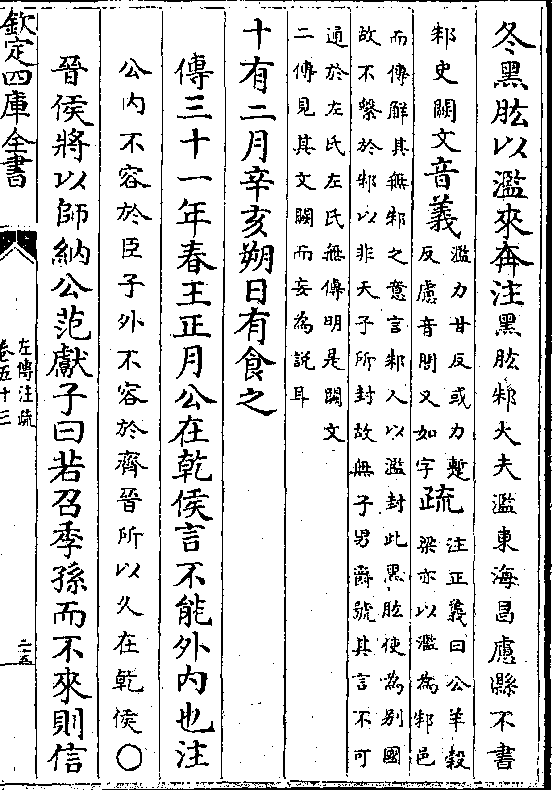 冬黑肱以濫來奔注黑肱邾大夫濫東海昌慮縣不書
邾史闕文音義
濫力甘反或力暫
反慮音閭又如字
疏
注正義曰公羊榖
梁亦以濫為邾邑
而傳解其無邾之意言邾人以濫封此黑肱使為別國
故不繫於邾以非天子所封故無子男爵號其言不可
通於左氏左氏無傳明是闕文
二傳見其文闕而妄為說耳
十有二月辛亥朔日有食之
傳三十一年春王正月公在乾侯言不能外内也注
公内不容於臣子外不容於齊晉所以久在乾侯〇
晉侯將以師納公范獻子曰若召季孫而不來則信
欽定四庫全書
左傳注疏
卷五十三
二五